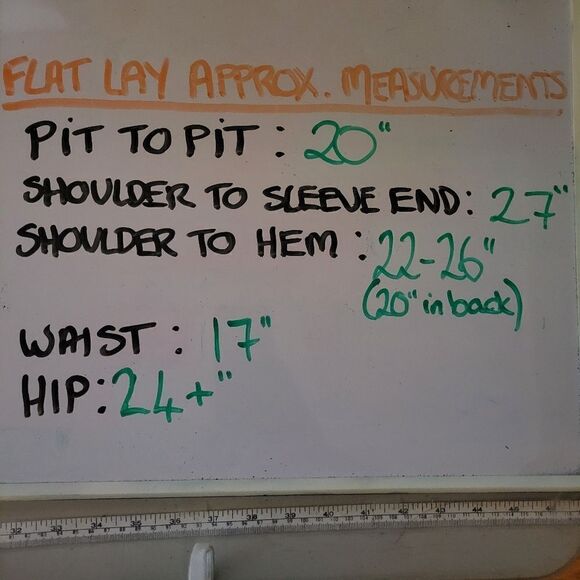 FLAT LAY APPROX. MEASUREMENTS
PiT TO PiT : 20"
SHOULDER TO SLEEVE END: 27"
SHOULDER TO HEM : 22-26"
(20" in back)
WAIST : 17"
HIP: 24+"
32 33 34 35 36 37 38 39 40 41 42 43 44 45